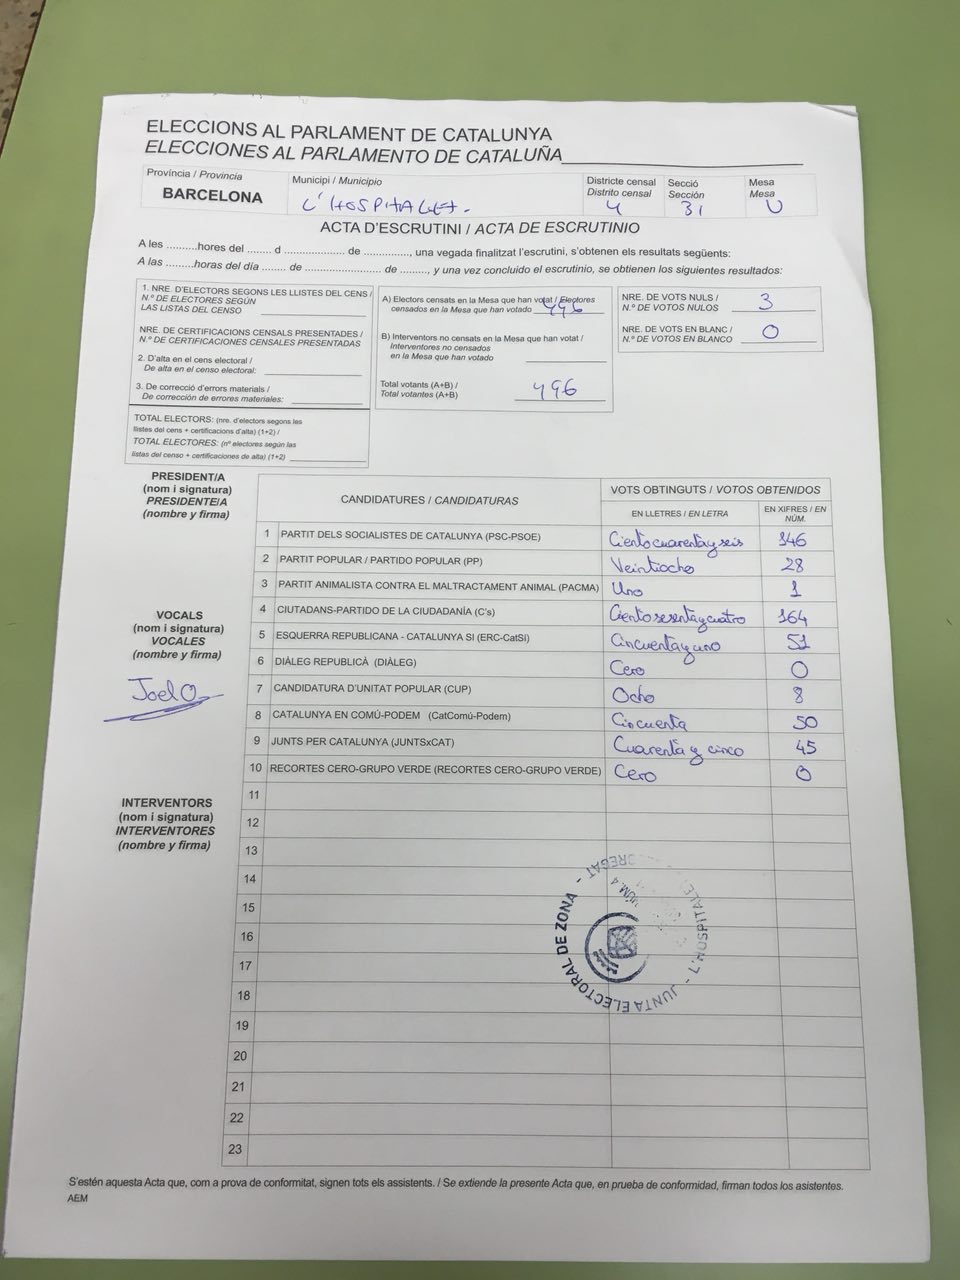 ELECCIONS AL PARLAMENT DE CATALUNYA
ELECCIONES AL PARLAMENTO DE CATALUÑA
Província / Provincia
BARCELONA
Municipi / Municipio
L'HOSPITALET.
Districte censal
Distrito censal
4
Secció
Sección
31
Mesa
Mesa
U
ACTA D'ESCRUTINI / ACTA DE ESCRUTINIO
A les ..........hores del ........ d ..................... de .............., una vegada finalitzat l'escrutini, s'obtenen els resultats següents:
A las .........horas del día ....... de ........................ de ........., y una vez concluido el escrutinio, se obtienen los siguientes resultados:
1. NRE. D'ELECTORS SEGONS LES LLISTES DEL CENS /
N.º DE ELECTORES SEGÚN
LAS LISTAS DEL CENSO
NRE. DE CERTIFICACIONS CENSALS PRESENTADES /
N.º DE CERTIFICACIONES CENSALES PRESENTADAS
2. D'alta en el cens electoral /
De alta en el censo electoral:
3. De correcció d'errors materials /
De corrección de errores materiales:
TOTAL ELECTORS: (nre. d'electors segons les
llistes del cens + certificacions d'alta) (1+2) /
TOTAL ELECTORES: (nº electores según las
listas del censo + certificaciones de alta) (1+2)
A) Electors censats en la Mesa que han votat / Electores
censados en la Mesa que han votado 496
B) Interventors no censats en la Mesa que han votat /
Interventores no censados
en la Mesa que han votado
Total votants (A+B) /
Total votantes (A+B)
496
NRE. DE VOTS NULS /
N.º DE VOTOS NULOS
3
NRE. DE VOTS EN BLANC /
N.º DE VOTOS EN BLANCO
0
PRESIDENT/A
(nom i signatura)
PRESIDENTE/A
(nombre y firma)
VOCALS
(nom i signatura)
VOCALES
(nombre y firma)
Joel O.
INTERVENTORS
(nom i signatura)
INTERVENTORES
(nombre y firma)
CANDIDATURES / CANDIDATURAS
VOTS OBTINGUTS / VOTOS OBTENIDOS
EN LLETRES / EN LETRA
EN XIFRES / EN
NÚM.
1 PARTIT DELS SOCIALISTES DE CATALUNYA (PSC-PSOE) Ciento cuarenta y seis 146
2 PARTIT POPULAR / PARTIDO POPULAR (PP) Veintiocho 28
3 PARTIT ANIMALISTA CONTRA EL MALTRACTAMENT ANIMAL (PACMA) Uno 1
4 CIUTADANS-PARTIDO DE LA CIUDADANÍA (C's) Ciento sesenta y cuatro 164
5 ESQUERRA REPUBLICANA - CATALUNYA SI (ERC-CatSi) Cincuenta y uno 51
6 DIÀLEG REPUBLICÀ (DIÀLEG) Cero 0
7 CANDIDATURA D'UNITAT POPULAR (CUP) Ocho 8
8 CATALUNYA EN COMÚ-PODEM (CatComú-Podem) Cincuenta 50
9 JUNTS PER CATALUNYA (JUNTSxCAT) Cuarenta y cinco 45
10 RECORTES CERO-GRUPO VERDE (RECORTES CERO-GRUPO VERDE) Cero 0
11
12
13
14
15
16
17
18
19
20
21
22
23
JUNTA ELECTORAL DE ZONA -
NÚM. 4
S'estén aquesta Acta que, com a prova de conformitat, signen tots els assistents. / Se extiende la presente Acta que, en prueba de conformidad, firman todos los asistentes.
AEM